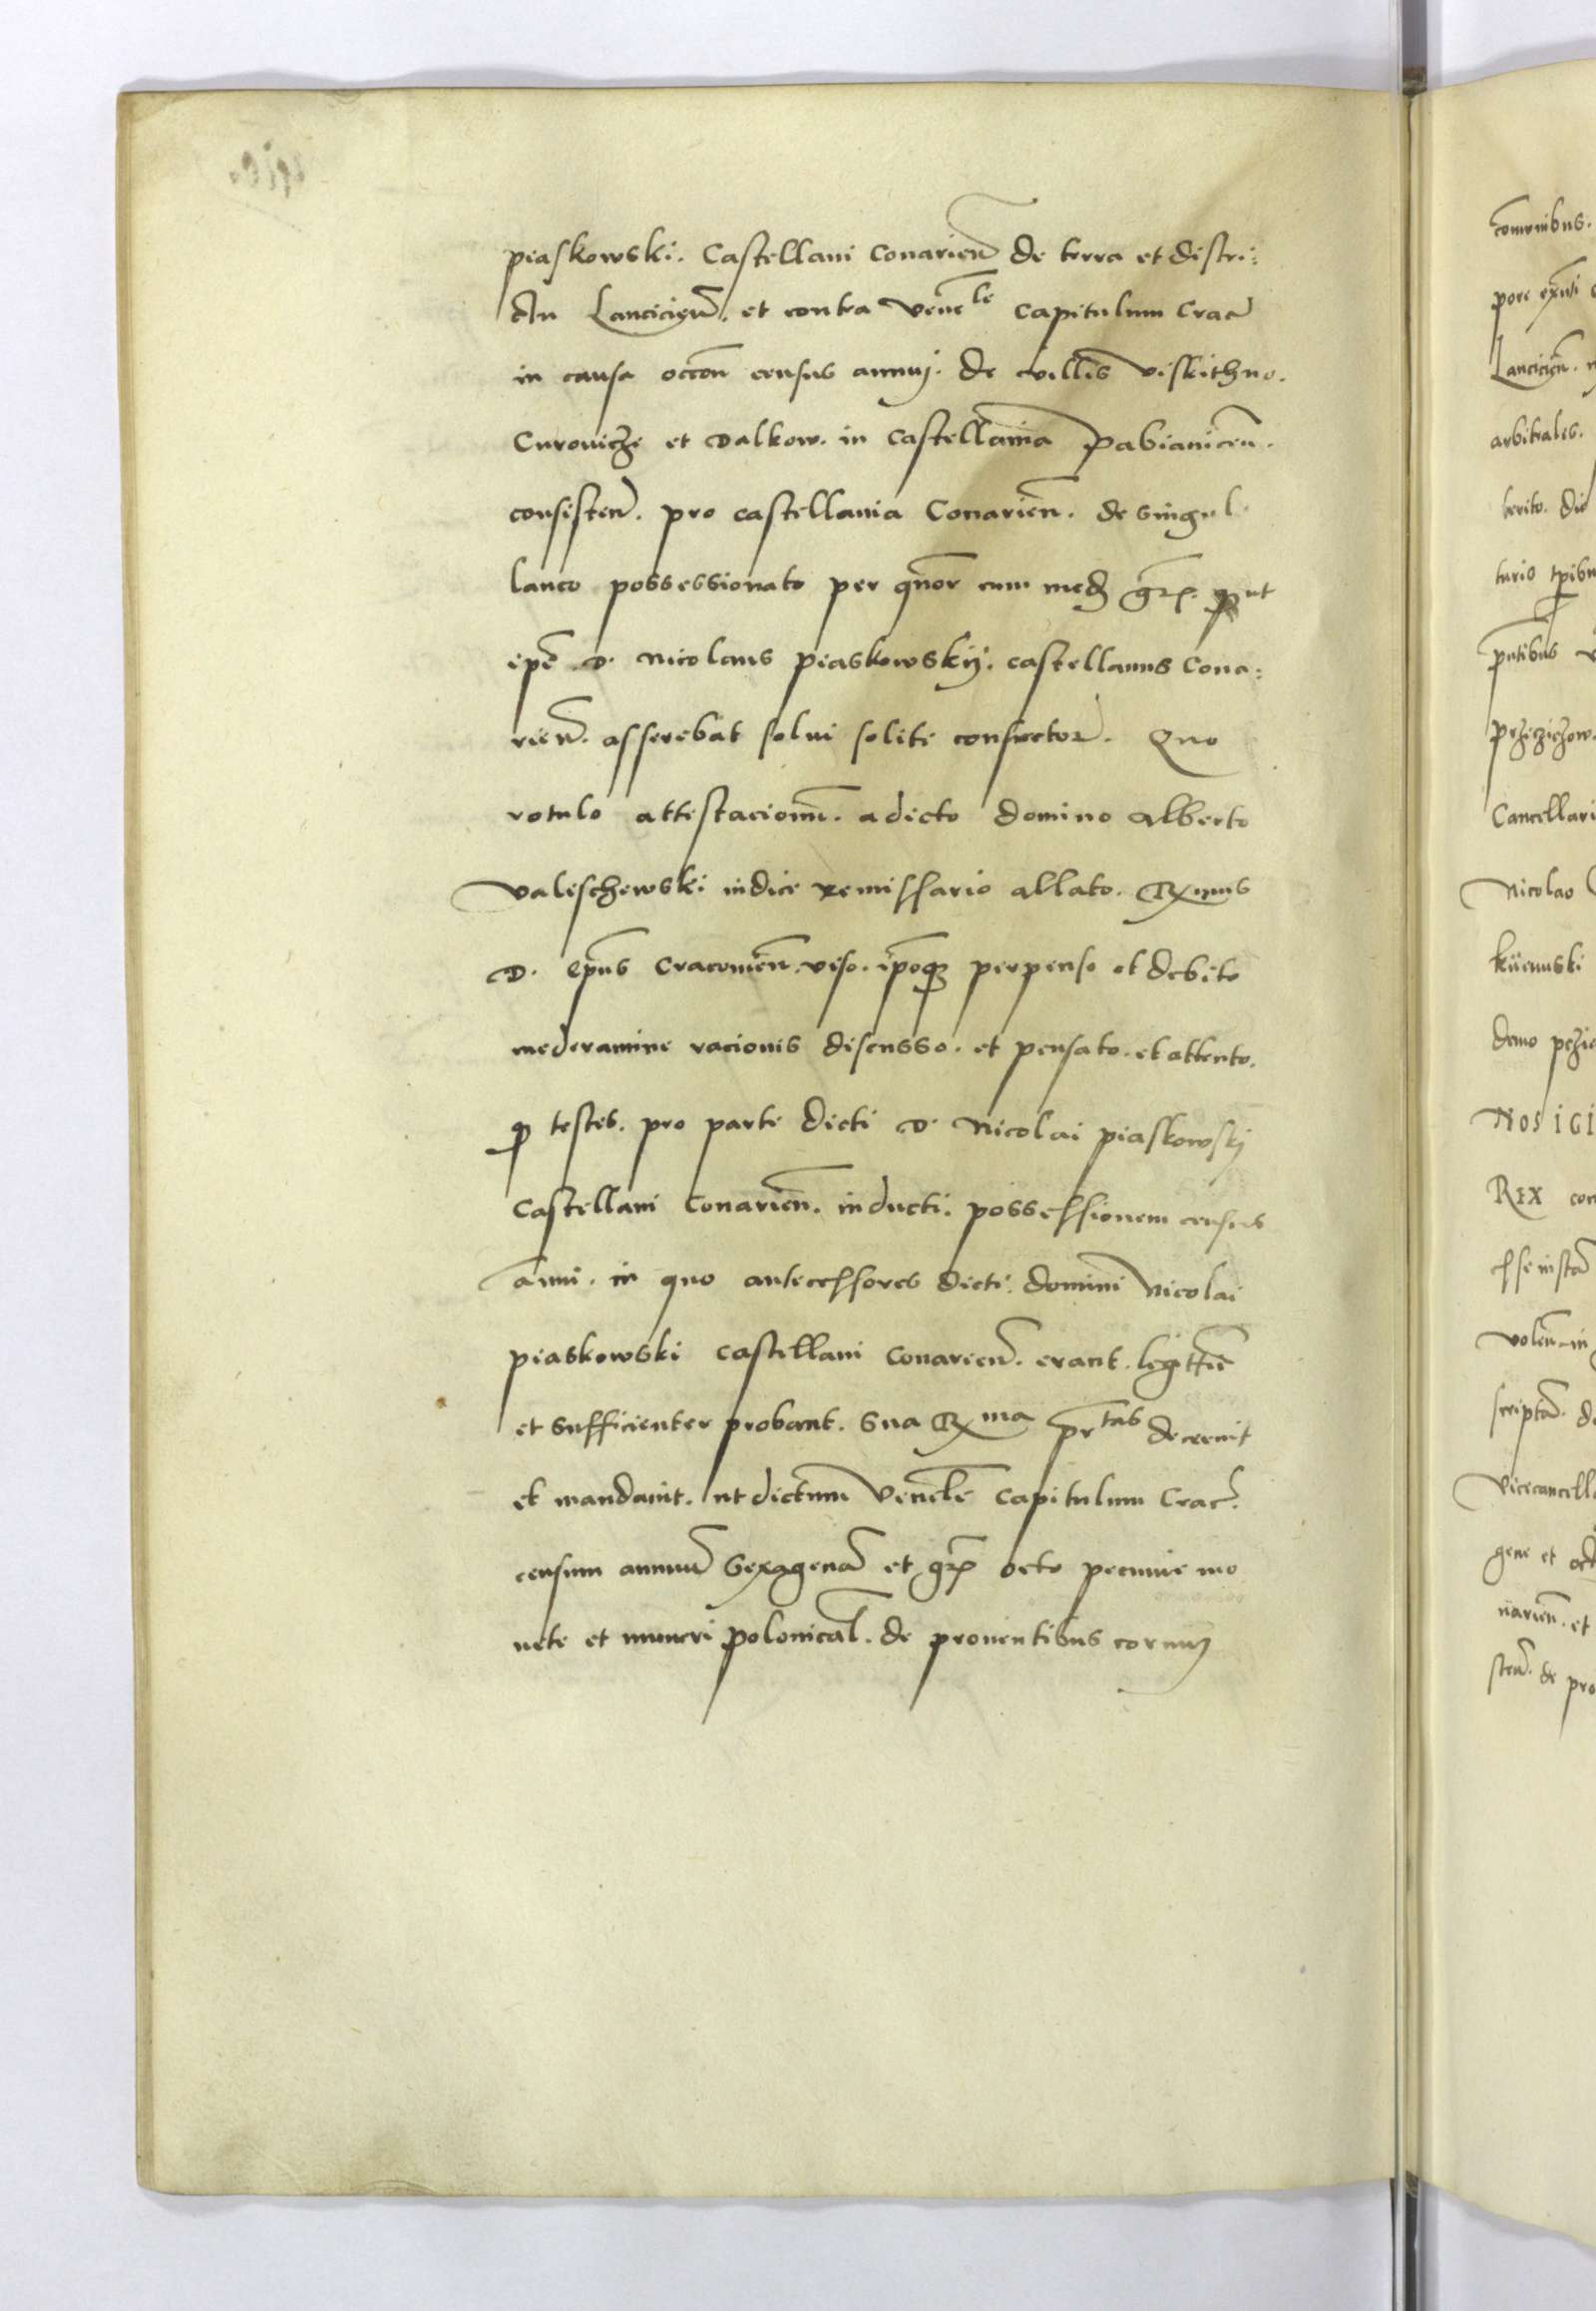 piaskowski. Castellani Conarien̄ de terra et distri:
ctu Lancicien̄. et contra vene^le Capitulum Crac̄
in causa occōn census annuj. de villis viskithno.
Curovicze et Dalkow. in Castellania pabianicen̄.
consisten̄. pro castellania Conarien̄. de singul
laneo possessionato per qnōr cum med gr̄. put
ipē D. Nicolaus piaskowskij. castellanus Cona:
rien̄. asserebat solui soliti confector. Quo
rotulo attestacionū. a dicto domino Alberto
Valischewski iudice remissario allato. Rxmus
D. Epūs Cracouien̄. viso. ip̄oqz perpenso et debito
moderamine racionis discusso. et pensato. et attento.
q testes. pro parte dicti D. Nicolai piaskowskj
Castellani Conarien̄. inducti. possessionem census
ānui. in quo antecessores dicti. domini Nicolai
piaskowski castellani conarien̄. erant. legittiē
et sufficienter probant. Sua Rx^ma pr^tas decreuit
et mandauit. ut dictum Venēle Capitulum Crac̄.
censum annuū Sexagenā et gr̄ octo pecunie mo
nete et numeri polonicāl. de prouentibus eorundem

comunibus.
pore
Lancicien̄.
arbitrales.
terito. die
turis tp̄ibus
pn̄tibus
przicziczow.
Cancellari
Nicolao
demo
NOS IGI
REX con
volen̄
scriptā. de
Vicecancella
gene et
narien̄. et
sten̄. de pro